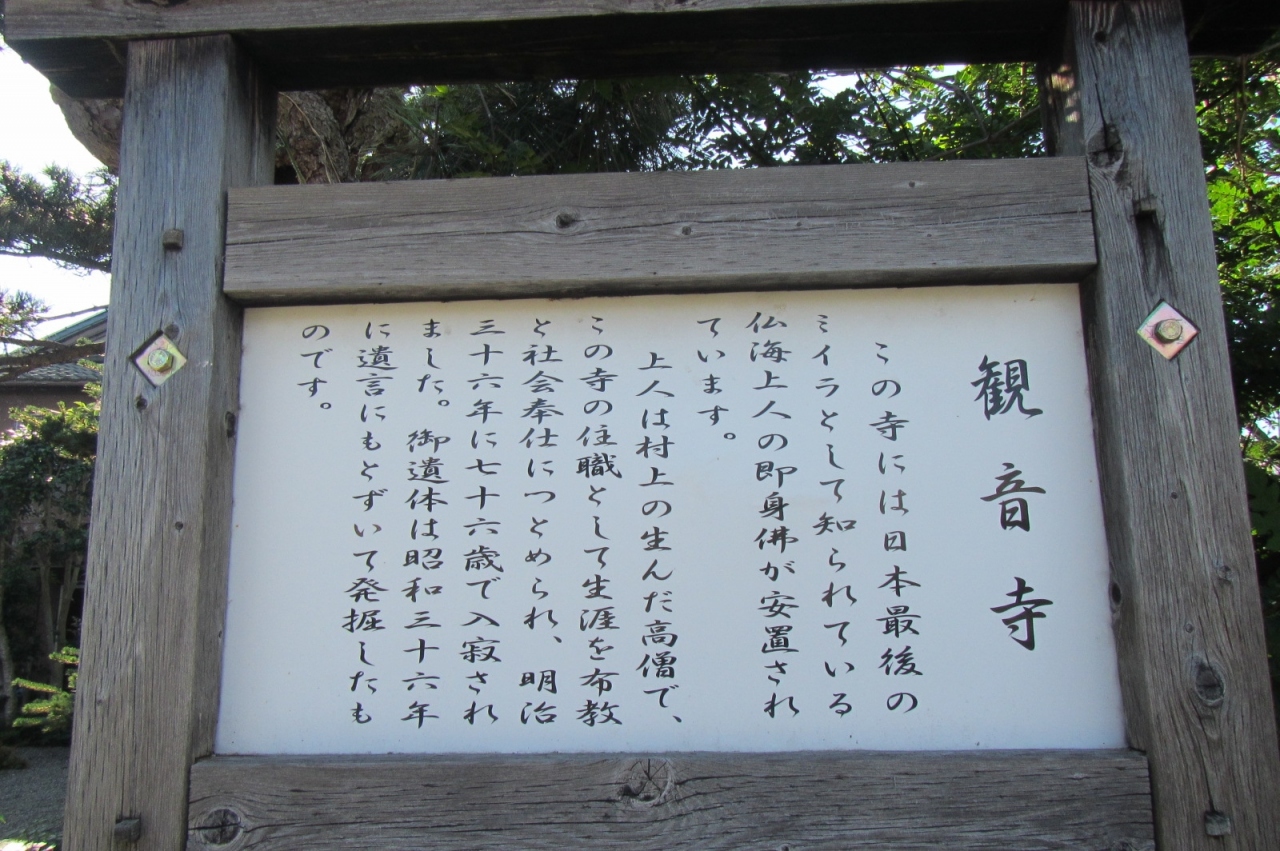 観音寺
この寺には日本最後の
ミイラとして知られている
仏海上人の即身佛が安置され
ています。
上人は村上の生んだ高僧で、
この寺の住職として生涯を布教
と社会奉仕につとめられ、明治
三十六年に七十六歳で入寂され
ました。御遺体は昭和三十六年
に遺言にもとずいて発掘したも
のです。